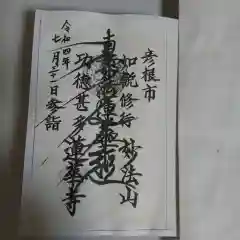 彦根市
妙法山
蓮華寺
如説修行
南無妙法蓮華経
功徳甚多
令和四年
七月三十一日参詣